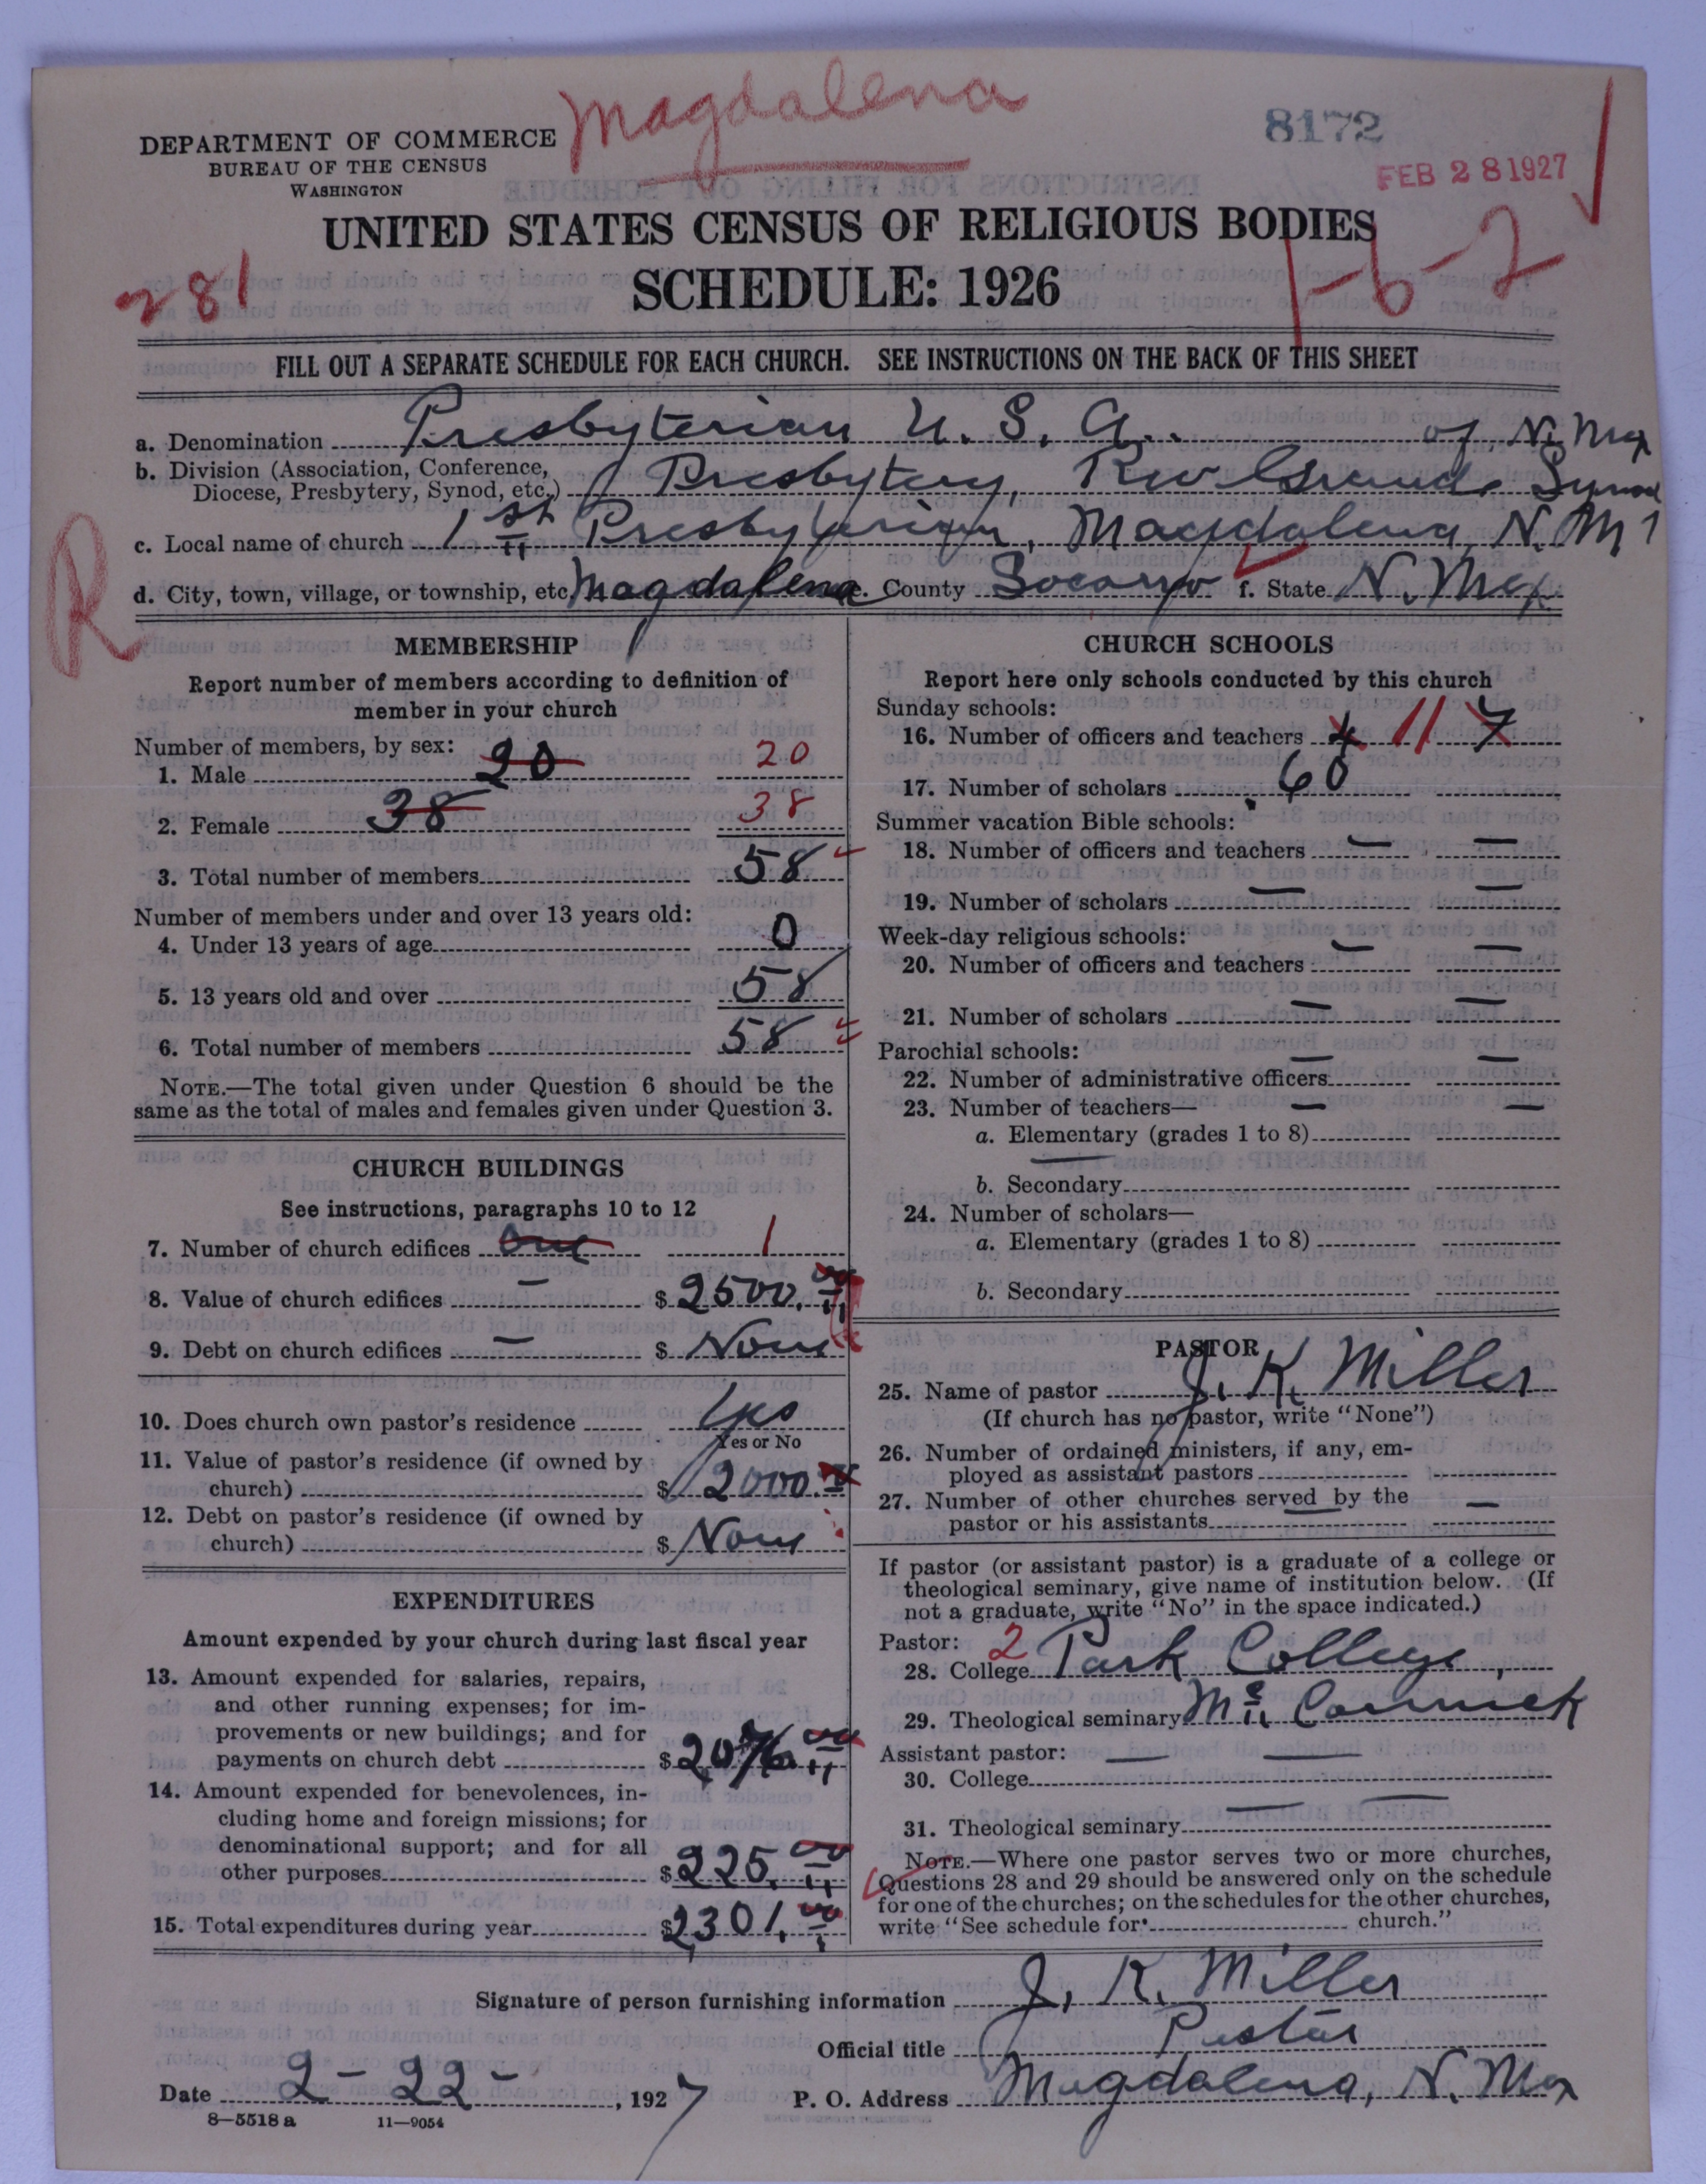 Magdalena
8172
DEPARTMENT OF COMMERCE
BUREAU OF THE CENSUS
WASHINGTON
FEB 28 1927
UNITED STATES CENSUS OF RELIGIOUS BODIES
SCHEDULE: 1926
281
1-6-2
FILL OUT A SEPARATE SCHEDULE FOR EACH CHURCH. SEE INSTRUCTIONS ON THE BACK OF THIS SHEET
a. Denomination Presbyterian U. S. A. of N. Mex
b. Division (Association, Conference,
Diocese, Presbytery, Synod, etc.) Presbytery, Rio Grande Synod
c. Local name of church 1st Presbyterian, Magdalena, N. M
R
d. City, town, village, or township, etc. Magdalena e. County Socorro f. State N. Mex.
MEMBERSHIP
Report number of members according to definition of
member in your church
Number of members, by sex:
1. Male 20 20
2. Female 38 38
3. Total number of members 58
Number of members under and over 13 years old:
4. Under 13 years of age 0
5. 13 years old and over 58
6. Total number of members 58
NOTE.—The total given under Question 6 should be the
same as the total of males and females given under Question 3.
CHURCH BUILDINGS
See instructions, paragraphs 10 to 12
7. Number of church edifices one 1
8. Value of church edifices — $ 2500.00
9. Debt on church edifices — $ None
10. Does church own pastor's residence Yes
Yes or No
11. Value of pastor's residence (if owned by
church) $ 2000.
12. Debt on pastor's residence (if owned by
church) $ None
EXPENDITURES
Amount expended by your church during last fiscal year
13. Amount expended for salaries, repairs,
and other running expenses; for im-
provements or new buildings; and for
payments on church debt $ 2076.00
14. Amount expended for benevolences, in-
cluding home and foreign missions; for
denominational support; and for all
other purposes $ 225.00
15. Total expenditures during year $ 2301.00
CHURCH SCHOOLS
Report here only schools conducted by this church
Sunday schools:
16. Number of officers and teachers 4 11 7
17. Number of scholars 60
Summer vacation Bible schools:
18. Number of officers and teachers — —
19. Number of scholars — —
Week-day religious schools:
20. Number of officers and teachers — —
21. Number of scholars — —
Parochial schools:
22. Number of administrative officers — —
23. Number of teachers— — —
a. Elementary (grades 1 to 8)
b. Secondary
24. Number of scholars—
a. Elementary (grades 1 to 8)
b. Secondary
PASTOR
25. Name of pastor J. K. Miller
(If church has no pastor, write "None")
26. Number of ordained ministers, if any, em-
ployed as assistant pastors
27. Number of other churches served by the
pastor or his assistants — —
If pastor (or assistant pastor) is a graduate of a college or
theological seminary, give name of institution below. (If
not a graduate, write "No" in the space indicated.)
Pastor: 2
28. College Park College,
29. Theological seminary Mc Cormick
Assistant pastor: — —
30. College
31. Theological seminary — —
NOTE.—Where one pastor serves two or more churches,
Questions 28 and 29 should be answered only on the schedule
for one of the churches; on the schedules for the other churches,
write "See schedule for church."
Signature of person furnishing information J. K. Miller
Official title Pastor
Date 2-22-, 1927 P. O. Address Magdalena, N. Mex
8—5518 a 11—9054